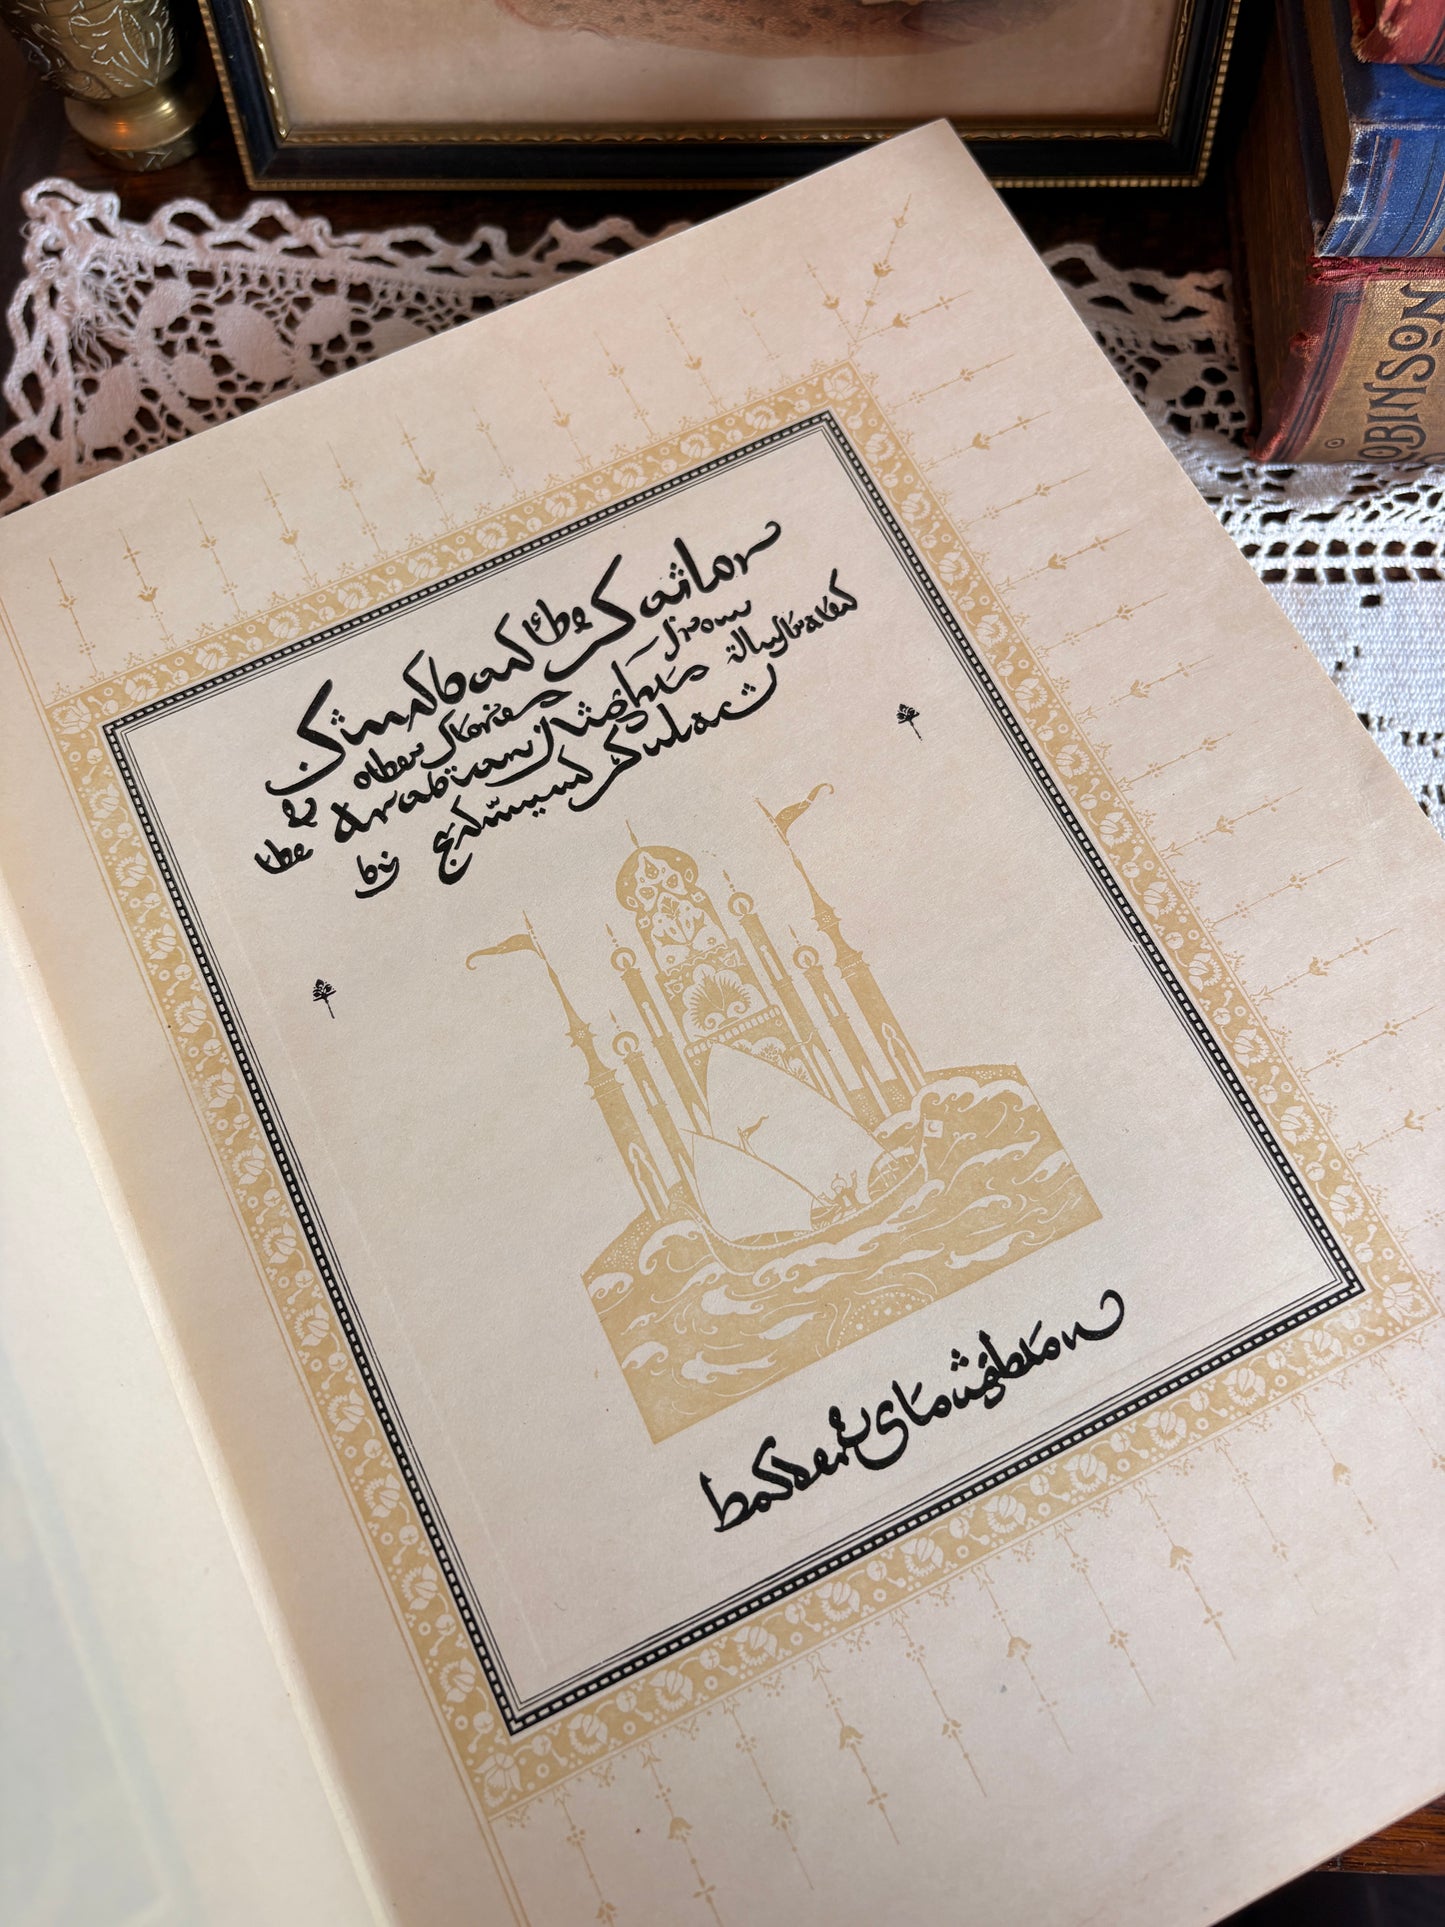 Sindbad the Sailor
& other stories from
the Arabian Nights illustrated
by Edmund Dulac
hodder & stoughton
ROBINSON